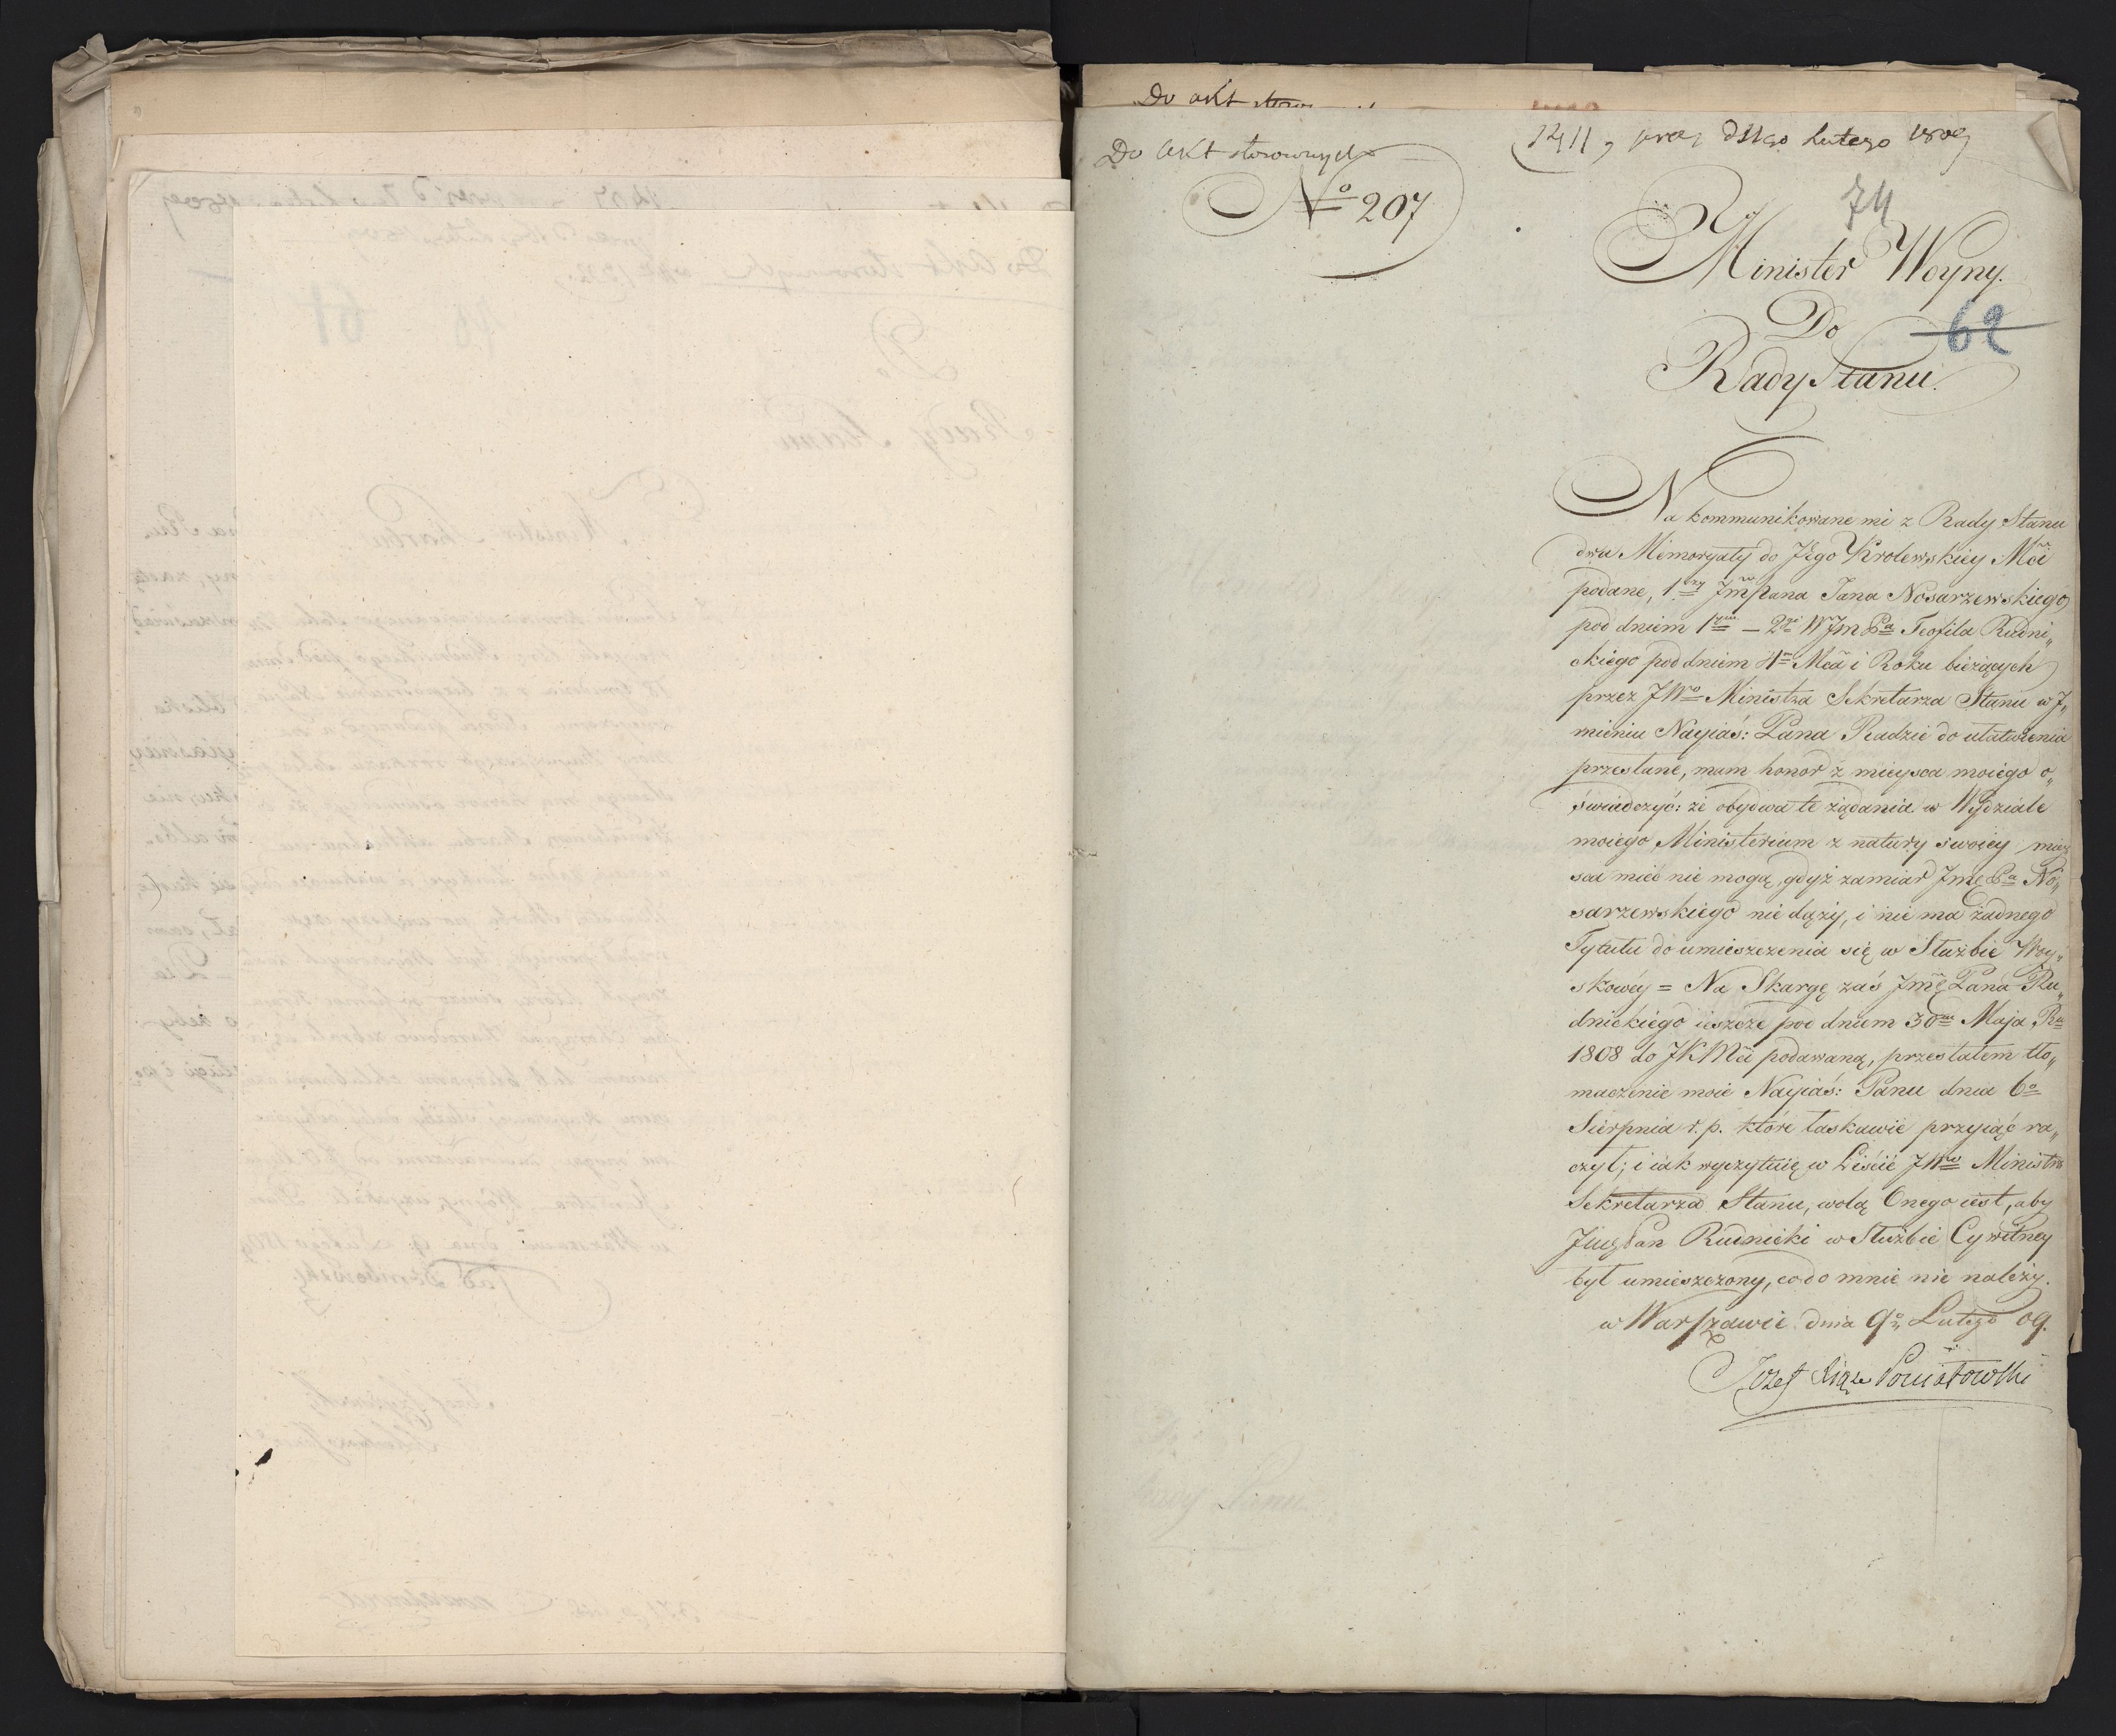 Do akt
Do akt stosownych
1411, prez d 11go Lutego 1809
No 207
74
Minister Woyny.
Do
62
Rady Stanu.
Na kommunikowane mi z Rady Stanu
dwa Memoryały do JEgo Krolewskiey Mci
podane, 1szy Jmpana Jana Nosarzewskiego
pod dniem 1ym — 2gi WJm Pa Teofila Rudni„
ckiego pod dniem 4m Mca i Roku bieżących
przez JWo Ministra Sekretarza Stanu w J„
mieniu Nayiaś: Pana Radzie do ułatwienia
przesłane, mam honor z mieysca moiego o„
świadczyć: że obydwa te żądania w Wydziale
moiego Ministerium z natury swoiey miey
sca mieć nie mogą, gdyż zamiar Jmę Pa No„
sarzewskiego nie dąży, i nie ma żadnego
Tytułu do umieszczenia się w Służbie Woy„
skowey = Na Skargę zaś Jmę Pana Ru„
dnickiego ieszcze pod dniem 30m Maja Ru
1808 do JKMci podawaną, przesłałem tło„
maczenie moie Nayiaś: Panu dnia 6o
Sierpnia r. p. które łaskawie przyiąć ra„
czył; i iak wyczytuię w Liście JWo Ministra
Sekretarza Stanu, wolą Onego iest, aby
Jmę Pan Rudnicki w Służbie Cywilney
był umieszczony, co do mnie nie należy.
w Warszawie dnia 9o Lutego 09.
Jozef Xiąże Poniatowski